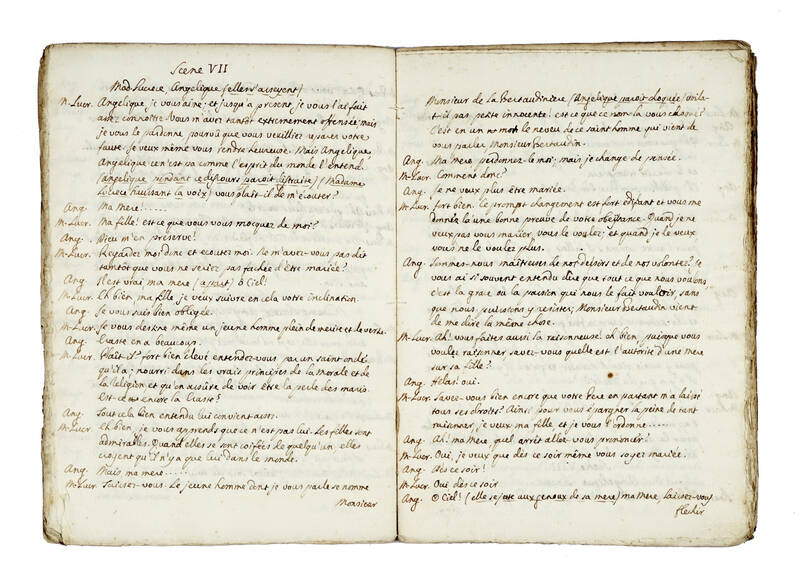 Scene VII
Mad Lucrece, Angelique (elles s'asseyent)
M. Lucr. Angelique, je vous aine; et jusqu'a present je vous l'ai fait
assez connoître. Vous m'avez tantôt extremement offensée, mais
je vous le pardonne pourvû que vous veuilliez reparer votre
faute. Je veux même vous rendre heureuse. Mais Angelique,
Angelique cen'est pas comme l'esprit du monde l'entend.
(angelique pendant ce discours paroit distraite) (Madame
Lucrece haussant la voix) vous plaît-il de m'écouter?
Ang. Ma mere.......
M. Lucr. Ma fille! est ce que vous vous mocquez de moi?
Ang. Dieu m'en préserve!
M. Lucr. Regardez moi donc et ecoutez moi. Ne m'avez-vous pas dit
tantôt que vous ne seriez pas fachée d'être mariée?
Ang. Il est vrai ma mere (a part) ô Ciel!
M. Lucr. Eh bien, ma fille je veux suivre en cela votre inclination.
Ang. Je vous suis bien obligée.
M. Lucr. Je vous destine même un jeune homme plein de merite et de vertu.
Ang. Eraste en a beaucoup.
M. Lucr. Plaît-il? fort bien elevé entendez-vous par un saint oncle
qu'il a; nourri dans les vrais principes de la Morale et de
la Religion et qu'on assure devoir être la perle des maris.
Est-ce la encore la Eraste?
Ang. Tout cela bien entendu lui convient aussi.
M. Lucr. Eh bien, je vous aprends que ce n'est pas lui. Les filles sont
admirables. Quand elles se sont coifées de quelqu'un, elles
croyent qu'il n'y a que lui dans le monde.
Ang. Mais ma mere......
M. Lucr. Taisez-vous. Le jeune homme dont je vous parle se nomme
Monsieur
Monsieur de La Bertaudiniere (Angelique paroit choquée) voila-
t-il pas, petite innocente! est ce que ce nom-la vous choque?
C'est en un mot le neveu de ce saint homme qui vient de
vous parler Monsieur Bertaudin.
Ang. Ma mere perdonnez-le moi; mais je change de pensée.
M. Lucr. Comment donc?
Ang. Je ne veux plus être mariée.
M. Lucr. fort bien. Ce prompt changement est fort enfant et vous me
donnez là une bonne preuve de votre obeïssance. Quand je ne
veux pas vous marier, vous le voulez; et quand je le veux
vous ne le voulez plus.
Ang. Sommes-nous maîtresses de nos desirs et de nos volontez? Je
vous ai si souvent entendu dire que tout ce que nous voulons
c'est la grace où la passion qui nous le fait vouloir, sans
que nous puissions y resister; Monsieur Bertaudin vient
de me dire la même chose.
M. Lucr. Ah! vous faites aussi la raisonneuse! eh bien, puisque vous
voulez raisonner savez-vous quelle est l'autorité d'une Mere
sur sa Fille?
Ang. Helas! oui.
M. Lucr. Savez-vous bien encore que votre Pere en partant m'a laissé
tous ses droits? Ainsi pour vous épargner la peine de tant
raisonner, je veux, ma fille, et je vous l'ordonne.....
Ang. Ah! ma Mere quel arrêt allez-vous prononcer?
M. Lucr. Oui, je veux que dès ce soir même vous soyez mariée.
Ang. Dès ce soir!
M. Lucr. Oui dès ce soir
Ang. O Ciel! (elle se jete aux genoux de sa mere) ma Mere, laissez-vous
flechir